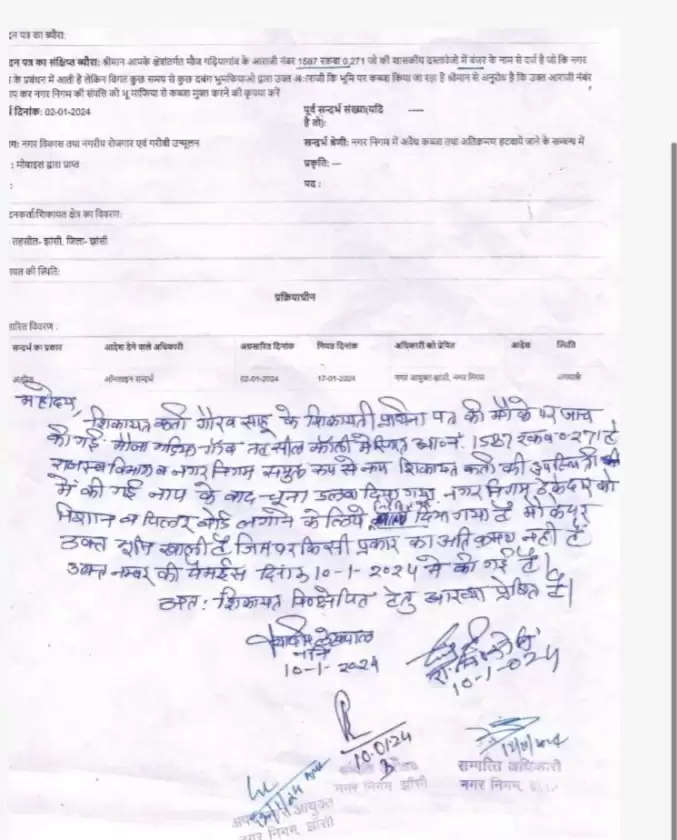 इन पत्र का ब्यौरा:
दन पत्र का संक्षिप्त ब्यौरा: श्रीमान आपके क्षेत्रांतर्गत मौज गढ़ियागांव के आराजी नंबर 1587 रकबा 0.271 जो की शासकीय दस्तावेजो में बंजर के नाम से दर्ज है जो कि नगर
के प्रबंधन में आती है लेकिन विगत कुछ समय से कुछ दबंग भूमफियाओ द्वारा उक्त आराजी कि भूमि पर कब्जा किया जा रहा है श्रीमान से अनुरोध है कि उक्त आराजी नंबर
कर नगर निगम की संपत्ति को भू माफिया से कब्जा मुक्त करने की कृपया करे
दिनांक: 02-01-2024 पूर्व सन्दर्भ संख्या(यदि ----
है तो):
नगर विकास तथा नगरीय रोजगार एवं गरीबी उन्मूलन सन्दर्भ श्रेणी: नगर निगम में अवैध कब्जा तथा अतिक्रमण हटवाये जाने के सम्बन्ध में
: मोबाइल द्वारा प्राप्त प्रकृति: —
: पद :
दनकर्ता/शिकायत क्षेत्र का विवरण:
तहसील- झांसी, जिला- झांसी
की स्थिति:
प्रक्रियाधीन
सारित विवरण :
सन्दर्भ का प्रकार आदेश देने वाले अधिकारी अग्रसारित दिनांक नियत दिनांक अधिकारी को प्रेषित आदेश स्थिति
ऑनलाइन सन्दर्भ 02-01-2024 17-01-2024 नगर आयुक्त-झांसी, नगर निगम
महोदय,
शिकायत कर्ता गौरव साहू के शिकायती प्रार्थना पत्र की मौके पर जांच
की गई मौजा गढ़िया गांव तहसील झाँसी में स्थित आ०नं० 1587 रकवा 0.271 है
राजस्व विभाग व नगर निगम संयुक्त रूप से नाप शिकायत कर्ता की उपस्थिति
में की गई नाप के बाद चूना डलवा दिया गया, नगर निगम ठेकेदार को
निशान व पिलर बोर्ड लगाने के लिये दिया गया है मौके पर
उक्त भूमि खाली है जिस पर किसी प्रकार का अतिक्रमण नही है
उक्त नम्बर की पैमाईश दिनांक 10-1-2024 मे की गई है।
अतः शिकायत निक्षेपित हेतु आख्या प्रेषित है।
लेखपाल
10-1-2024
10-1-024
10.01.24
नगर निगम झाँसी
सम्पत्ति अधिकारी
नगर निगम,
आयुक्त
नगर निगम, झाँसी